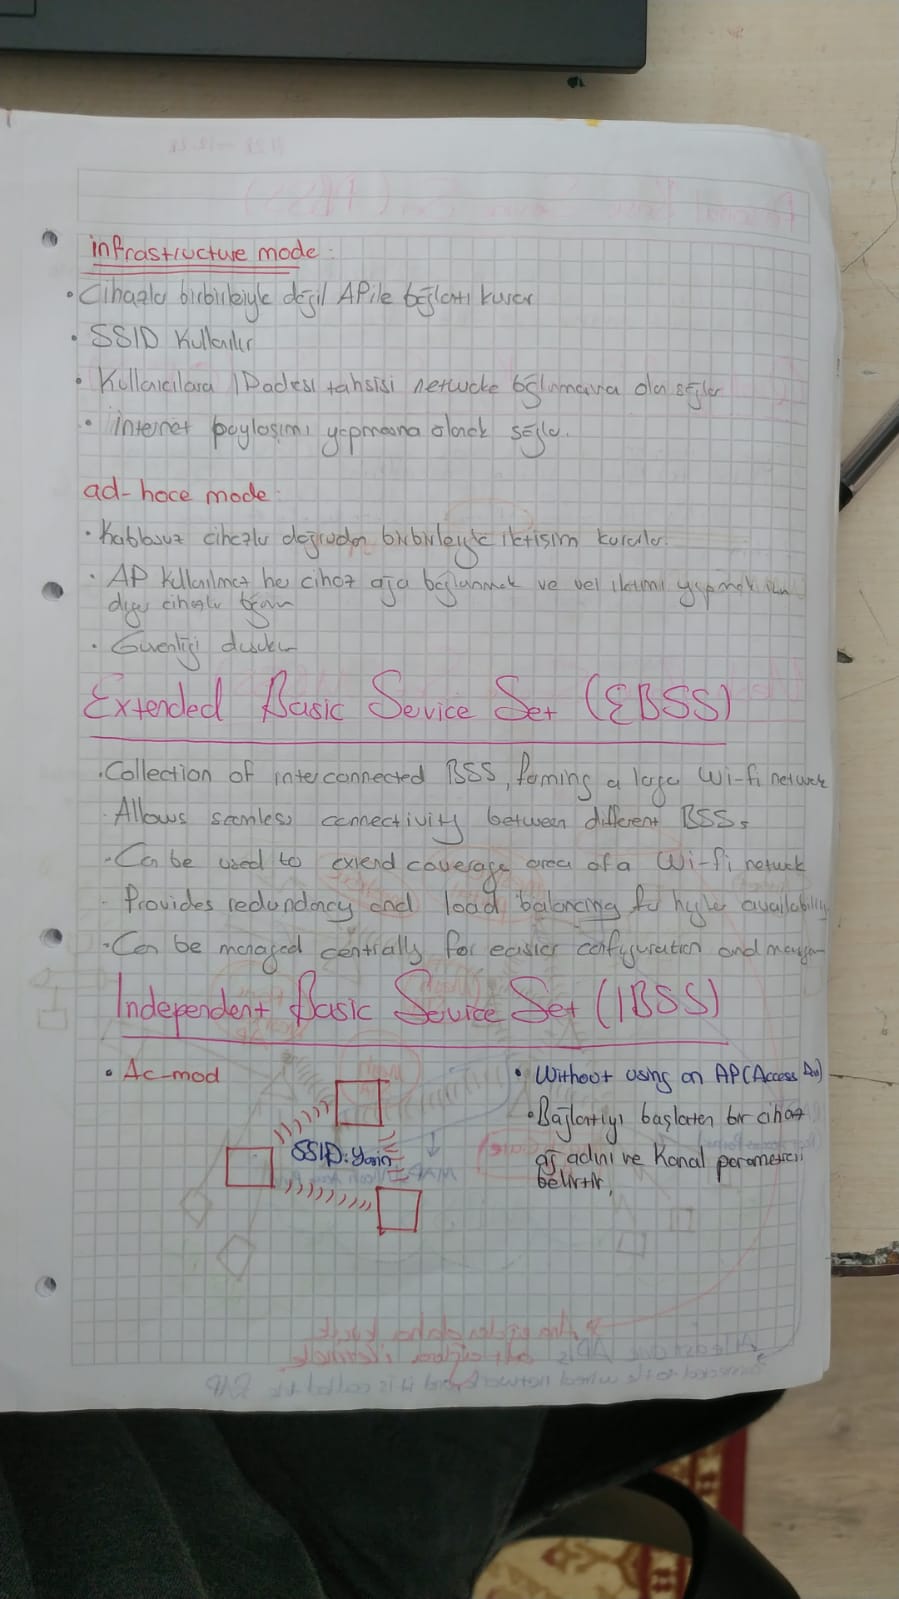 infrastructure mode:
• Cihazlar birbirleriyle değil AP ile bağlantı kurar
• SSID Kullanılır
• Kullanıcılara IP adresi tahsisi networke bağlanmasına olan sağlar
• internet paylaşımı yapmasına olanak sağlar.
ad-hoce mode:
• Kablosuz cihazlar doğrudan birbirleriyle iletişim kurarlar.
• AP kullanılmaz her cihaz ağa bağlanmak ve veri iletimi yapmak için
diğer cihazlar
• Güvenliği düşüktür
Extended Basic Sevice Set (EBSS)
• Collection of interconnected BSS, forming a large Wi-fi network
• Allows seamless connectivity between different BSSs
• Can be used to extend coverage area of a Wi-fi network
• Provides redundancy and load balancing for higher availability
• Can be managed centrally for easier configuration and
Independent Basic Service Set (IBSS)
• Ac-mod
SSID:
• Without using an AP (Access
• Bağlantıyı başlatan bir cihaz
ağ adını ve Kanal parametresi
belirtir,